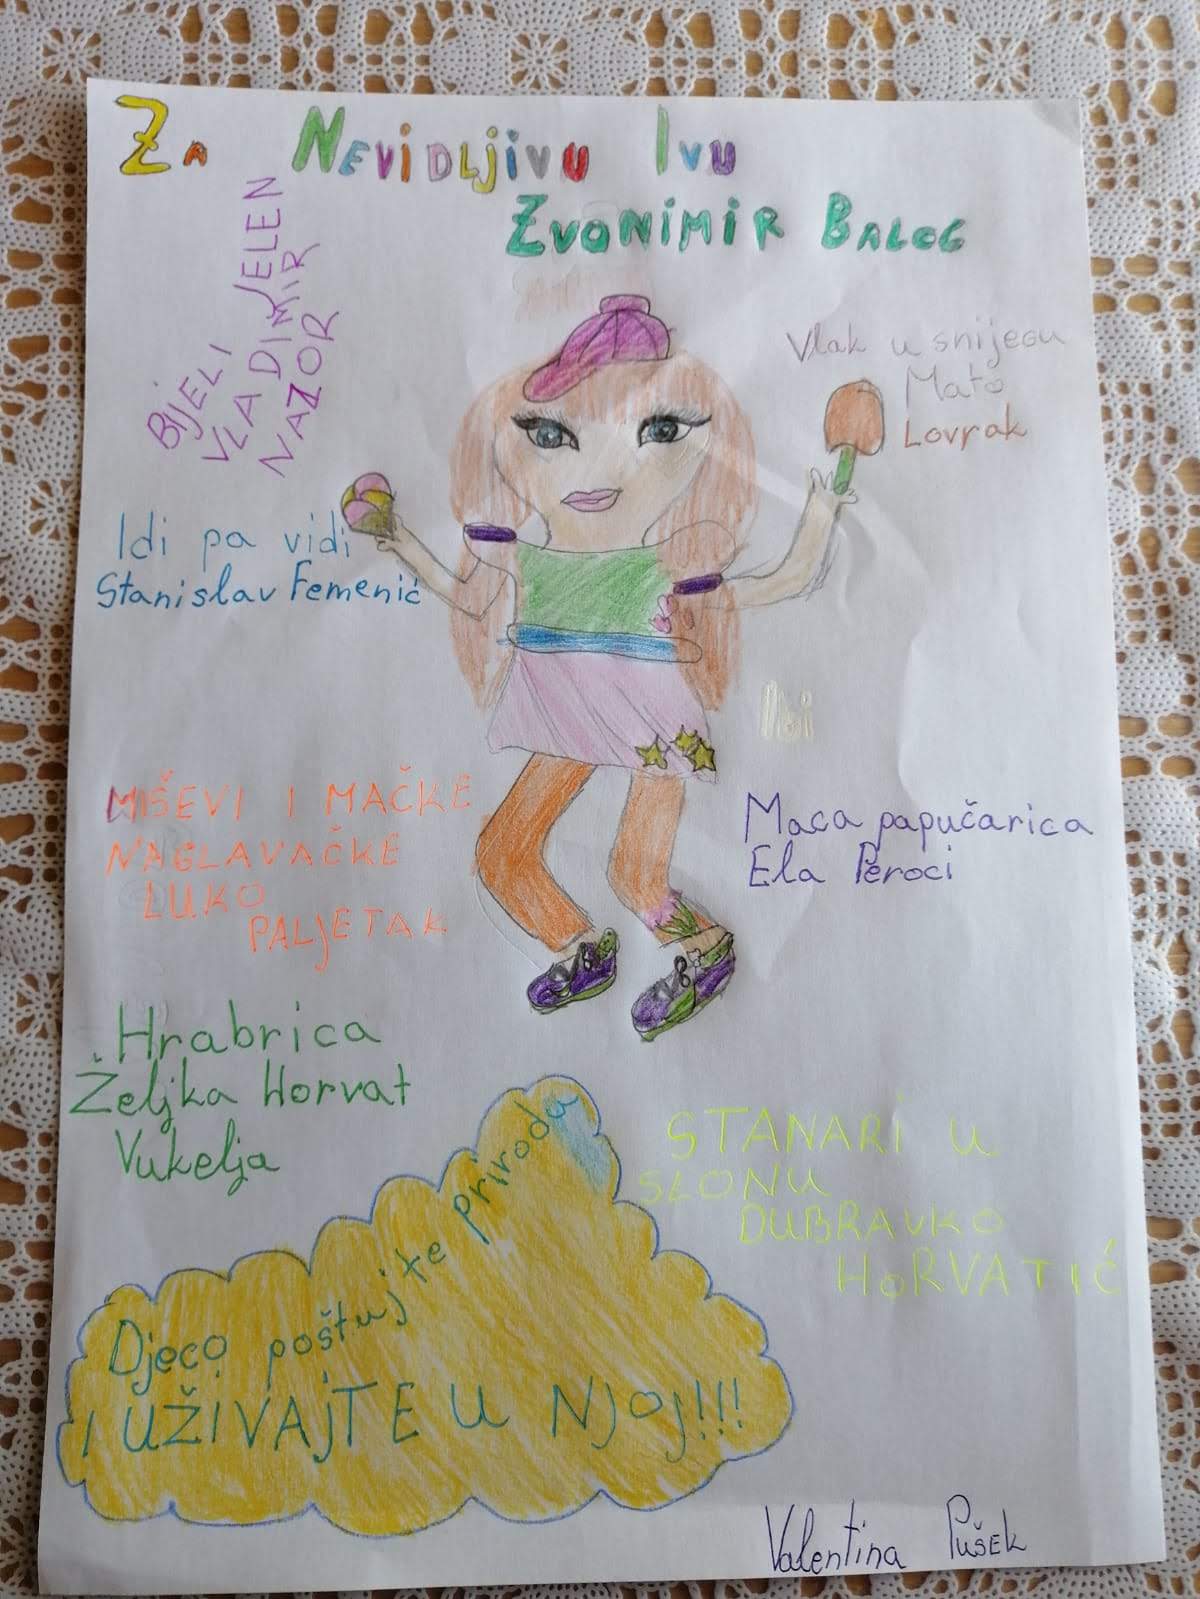 Za Nevidljivu Ivu
Zvonimir Balog
BIJELI JELEN
VLADIMIR
NAZOR
Vlak u snijegu
Mato
Lovrak
Idi pa vidi
Stanislav Femenić
Ibi
MIŠEVI I MAČKE
NAGLAVAČKE
LUKO
PALJETAK
Maca papučarica
Ela Peroci
Hrabrica
Željka Horvat
Vukelja
STANARI U
SLONU
DUBRAVKO
HORVATIĆ
Djeco poštujte priroda
I UŽIVAJTE U NJOJ!!!
Valentina Pušek